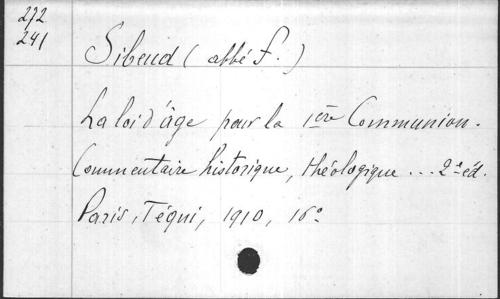 272
241
Sibeud (abbé F.)
La loi d'âge pour la 1ère Communion.
Commentaire historique, théologique ... 2e éd.
Paris, Téqui, 1910, 16°